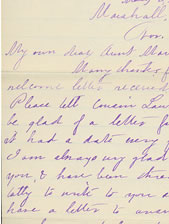 Marshall,
Nov.
My own dear Aunt Mar
Many thanks f
welcome letter received
Please tell cousin Lau
be glad of a letter fr
it had a date very
I am always very glad
you, & have been
ally to write to you a
have a letter to answ